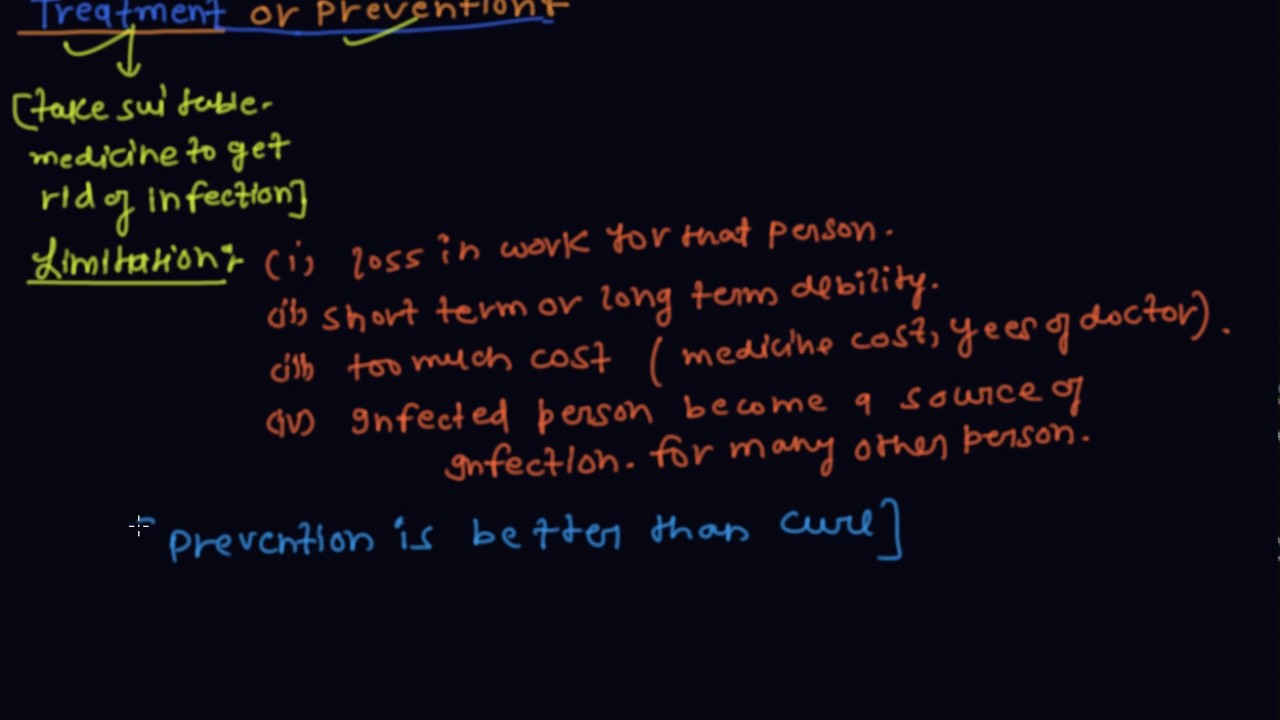 Treatment or Prevention?
[take suitable
medicine to get
rid of infection]
Limitation:
(i) loss in work for that person.
(ii) short term or long term debility.
(iii) too much cost (medicine cost, yees of doctor).
(iv) Infected person become a source of
infection. for many other person.
[prevention is better than cure]